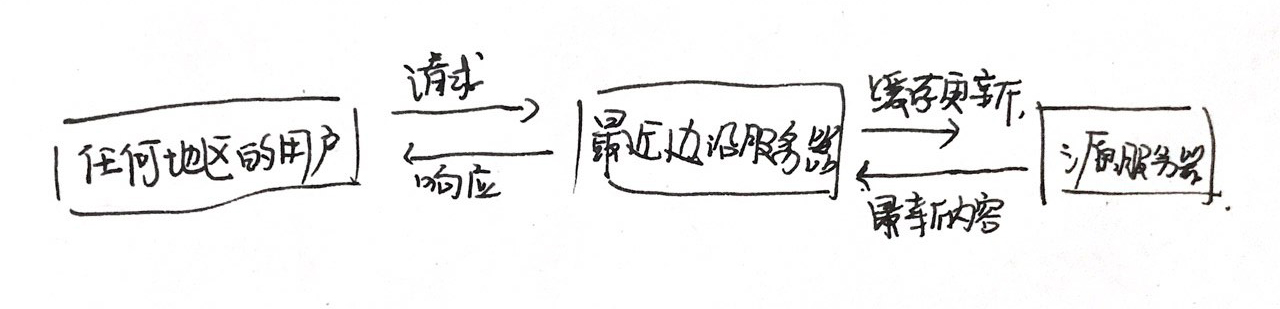 请求
任何地区的用户
响应
最近边沿服务器
缓存更新
最新内容
源服务器